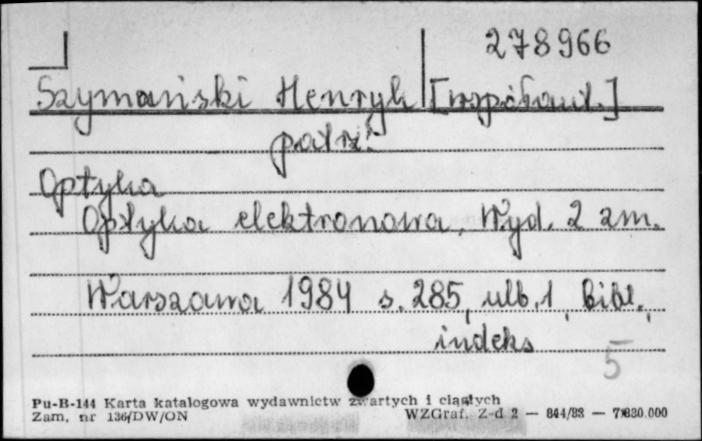 278966
Szymański Henryk [współaut.]
patrz:
Optyka
Optyka elektronowa. Wyd. 2 zm.
Warszawa 1984 s. 285, ulb. 1, bibl.,
indeks
5
Pu-B-144 Karta katalogowa wydawnictw zwartych i ciągłych
Zam. nr 136/DW/ON WZGraf. Z-d 2 — 844/83 — 7.630.000